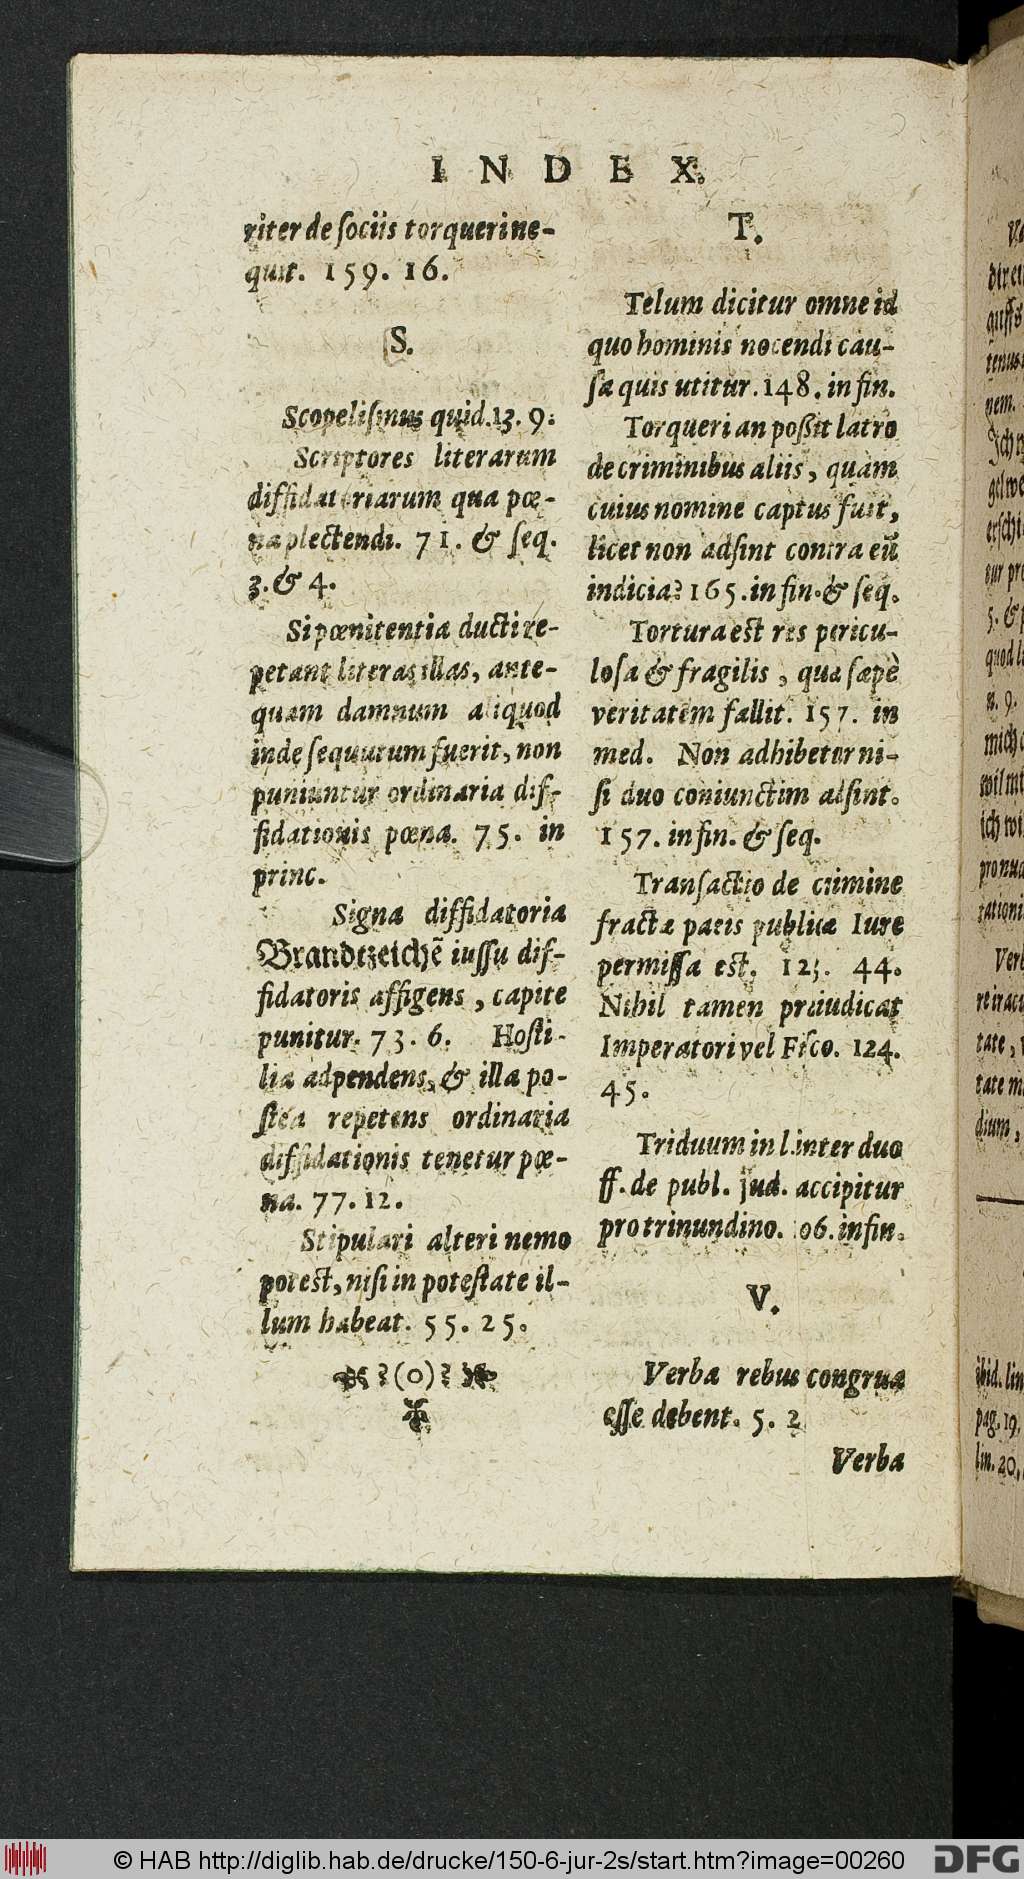 INDEX.
riter de ſociis torqueri ne-
quit. 159. 16.
S.
Scopeliſmus quid. 13. 9.
Scriptores literarum
diffidatoriarum qua pœ-
na plectendi. 71. & ſeq.
3. & 4.
Si pœnitentia ducti re-
petant literas illas, ante-
quam damnum aliquod
inde ſequutum fuerit, non
puniuntur ordinaria dif-
fidationis pœna. 75. in
princ.
Signa diffidatoria
Brandtzeichē iuſſu dif-
fidatoris affigens, capite
punitur. 73. 6. Hoſti-
lia adpendens, & illa po-
ſtea repetens ordinaria
diffidationis tenetur pœ-
na. 77. 12.
Stipulari alteri nemo
poteſt, niſi in poteſtate il-
lum habeat. 55. 25.
(o)
T.
Telum dicitur omne id
quo hominis nocendi cau-
ſa quis utitur. 148. in fin.
Torqueri an poßit latro
de criminibus aliis, quàm
cuius nomine captus fuit,
licet non adſint contra eū
indicia? 165. in fin. & ſeq.
Tortura eſt res pericu-
loſa & fragilis, qua ſæpè
veritatem fallit. 157. in
med. Non adhibetur ni-
ſi duo coniunctim adſint.
157. in fin. & ſeq.
Tranſactio de crimine
fractæ pacis publicæ Iure
permiſſa eſt. 123. 44.
Nihil tamen præiudicat
Imperatori vel Fiſco. 124.
45.
Triduum in l. inter duo
ff. de publ. jud. accipitur
pro trinundino. 06. in fin.
V.
Verba rebus congrua
eſſe debent. 5. 2
Verba
ibid. lin
pag. 19.
lin. 20.
© HAB http://diglib.hab.de/drucke/150-6-jur-2s/start.htm?image=00260
DFG